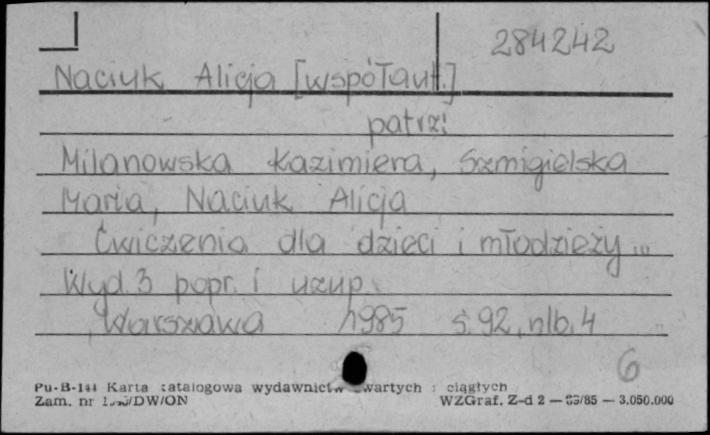 284242
Naciuk Alicja [współaut.]
patrz:
Milanowska Kazimiera, Szmigielska
Maria, Naciuk Alicja
Ćwiczenia dla dzieci i młodzieży...
Wyd. 3 popr. i uzup.
Warszawa 1985 s. 92, nlb. 4
6
Pu-B-144 Karta katalogowa wydawnictw zwartych i ciągłych
Zam. nr /DW/ON WZGraf. Z-d 2 — /85 — 3.050.000